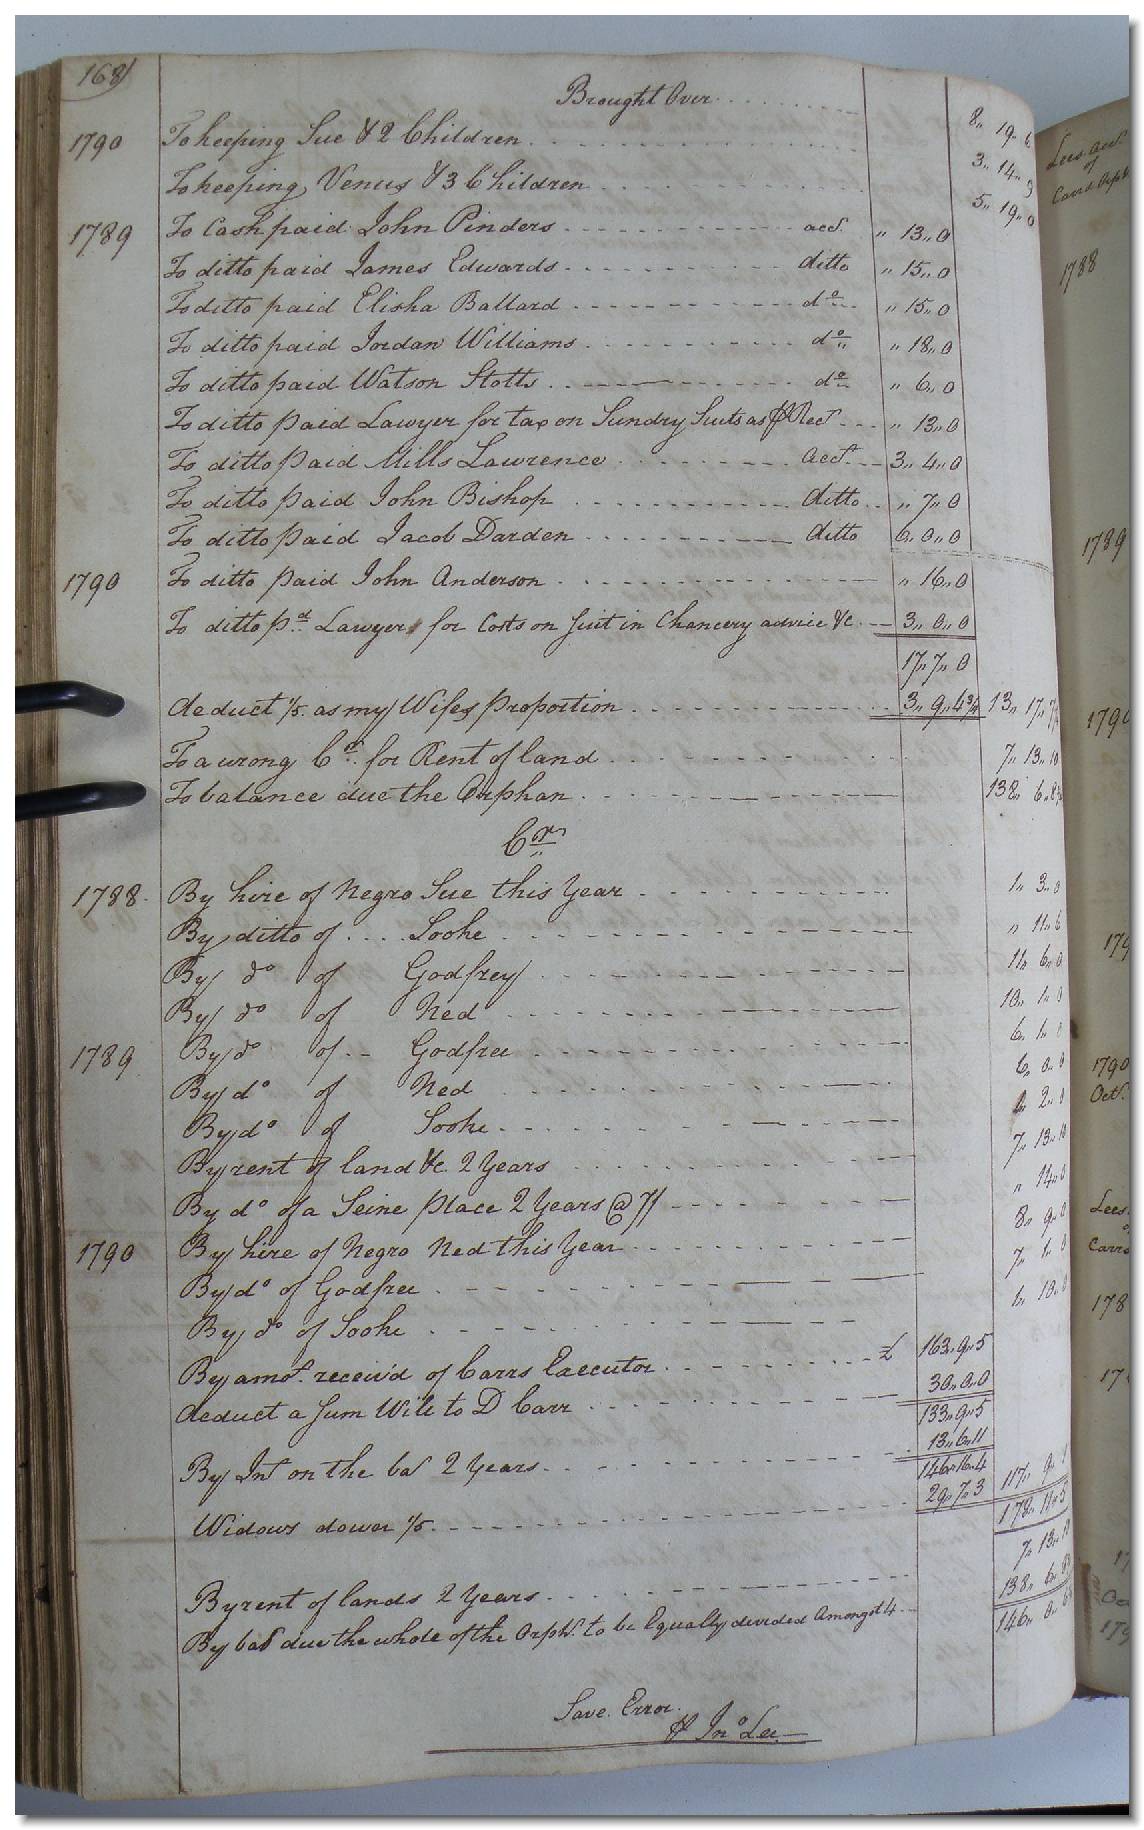 168
Brought Over 8,, 19,, 6
1790 To keeping Sue & 2 Children 3,, 14,, 9
To keeping Venus & 3 Children 5,, 19,, 0
1789 To Cash paid John Pinders acct. ,, 13,, 0
To ditto paid James Edwards ditto ,, 15,, 0
To ditto paid Elisha Ballard do ,, 15,, 0
To ditto paid Jordan Williams do ,, 18,, 0
To ditto paid Watson Stotts do ,, 6,, 0
To ditto paid Lawyer for tax on Sundry Suits as ⅌ Rect ,, 13,, 0
To ditto paid Mills Lawrence acct. 3,, 4,, 0
To ditto paid John Bishop ditto ,, 7,, 0
To ditto paid Jacob Darden ditto 6,, 0,, 0
1790 To ditto paid John Anderson ,, 16,, 0
To ditto pd. Lawyers for Costs on Suit in Chancery advice &c 3,, 0,, 0
17,, 7,, 0
deduct 1/5 as my Wifes proportion 3,, 9,, 4 3/4 13,, 17,,
To a wrong Cr. for Rent of land 7,, 13,, 10
To balance due the Orphan 138,, 6,,
Cr
1788 By hire of Negro Sue this Year 1,, 3,, 0
By ditto of Sooke ,, 11,, 6
By do of Godfrey 11,, 6,, 0
By do of Ned 10,, 1,, 0
1789 By do of Godfree 6,, 1,, 0
By do of Ned 6,, 0,, 0
By do of Sooke 2,, 0
By rent of land &c 2 Years 7,, 13,, 10
By do of a Seine place 2 Years @ 7/ ,, 14,, 0
1790 By hire of Negro Ned this Year 8,, 9,, 0
By do of Godfree 7,, 1,, 0
By do of Sooke 10,, 0
By amot. receiv'd of Carrs Executor £ 163,, 9,, 5
deduct a Sum Will to D Carr 30,, 0,, 0
133,, 9,, 5
By Int on the bal 2 Years 13,, 6,, 11
146,, 16,, 4
Widows dower 1/5 29,, 7,, 3 117,, 9,, 1
178,, 11,, 5
By rent of lands 2 Years 7,, 13,, 10
By bal due the whole of the Orphs. to be Equally divided Amongst 4 138,, 6,,
146,, 0,,
Save Error
⅌ Jno Lee
Lees acct.
of
Carrs Orph
1788
1789
1790
179
1790
Oct.
Lees
Carrs
178
17